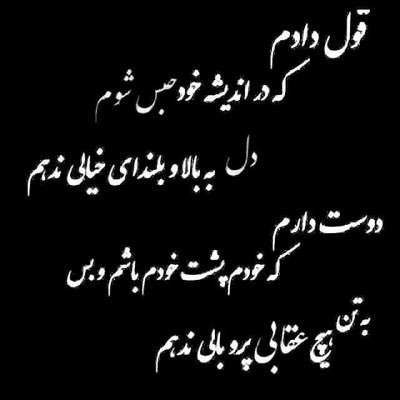 قول دادم
که در اندیشه خود حبس شوم
دل به بالا و بلندای خیالی ندهم
دوست دارم
که خودم پشت خودم باشم و بس
به تن هیچ عقابی پر و بالی ندهم